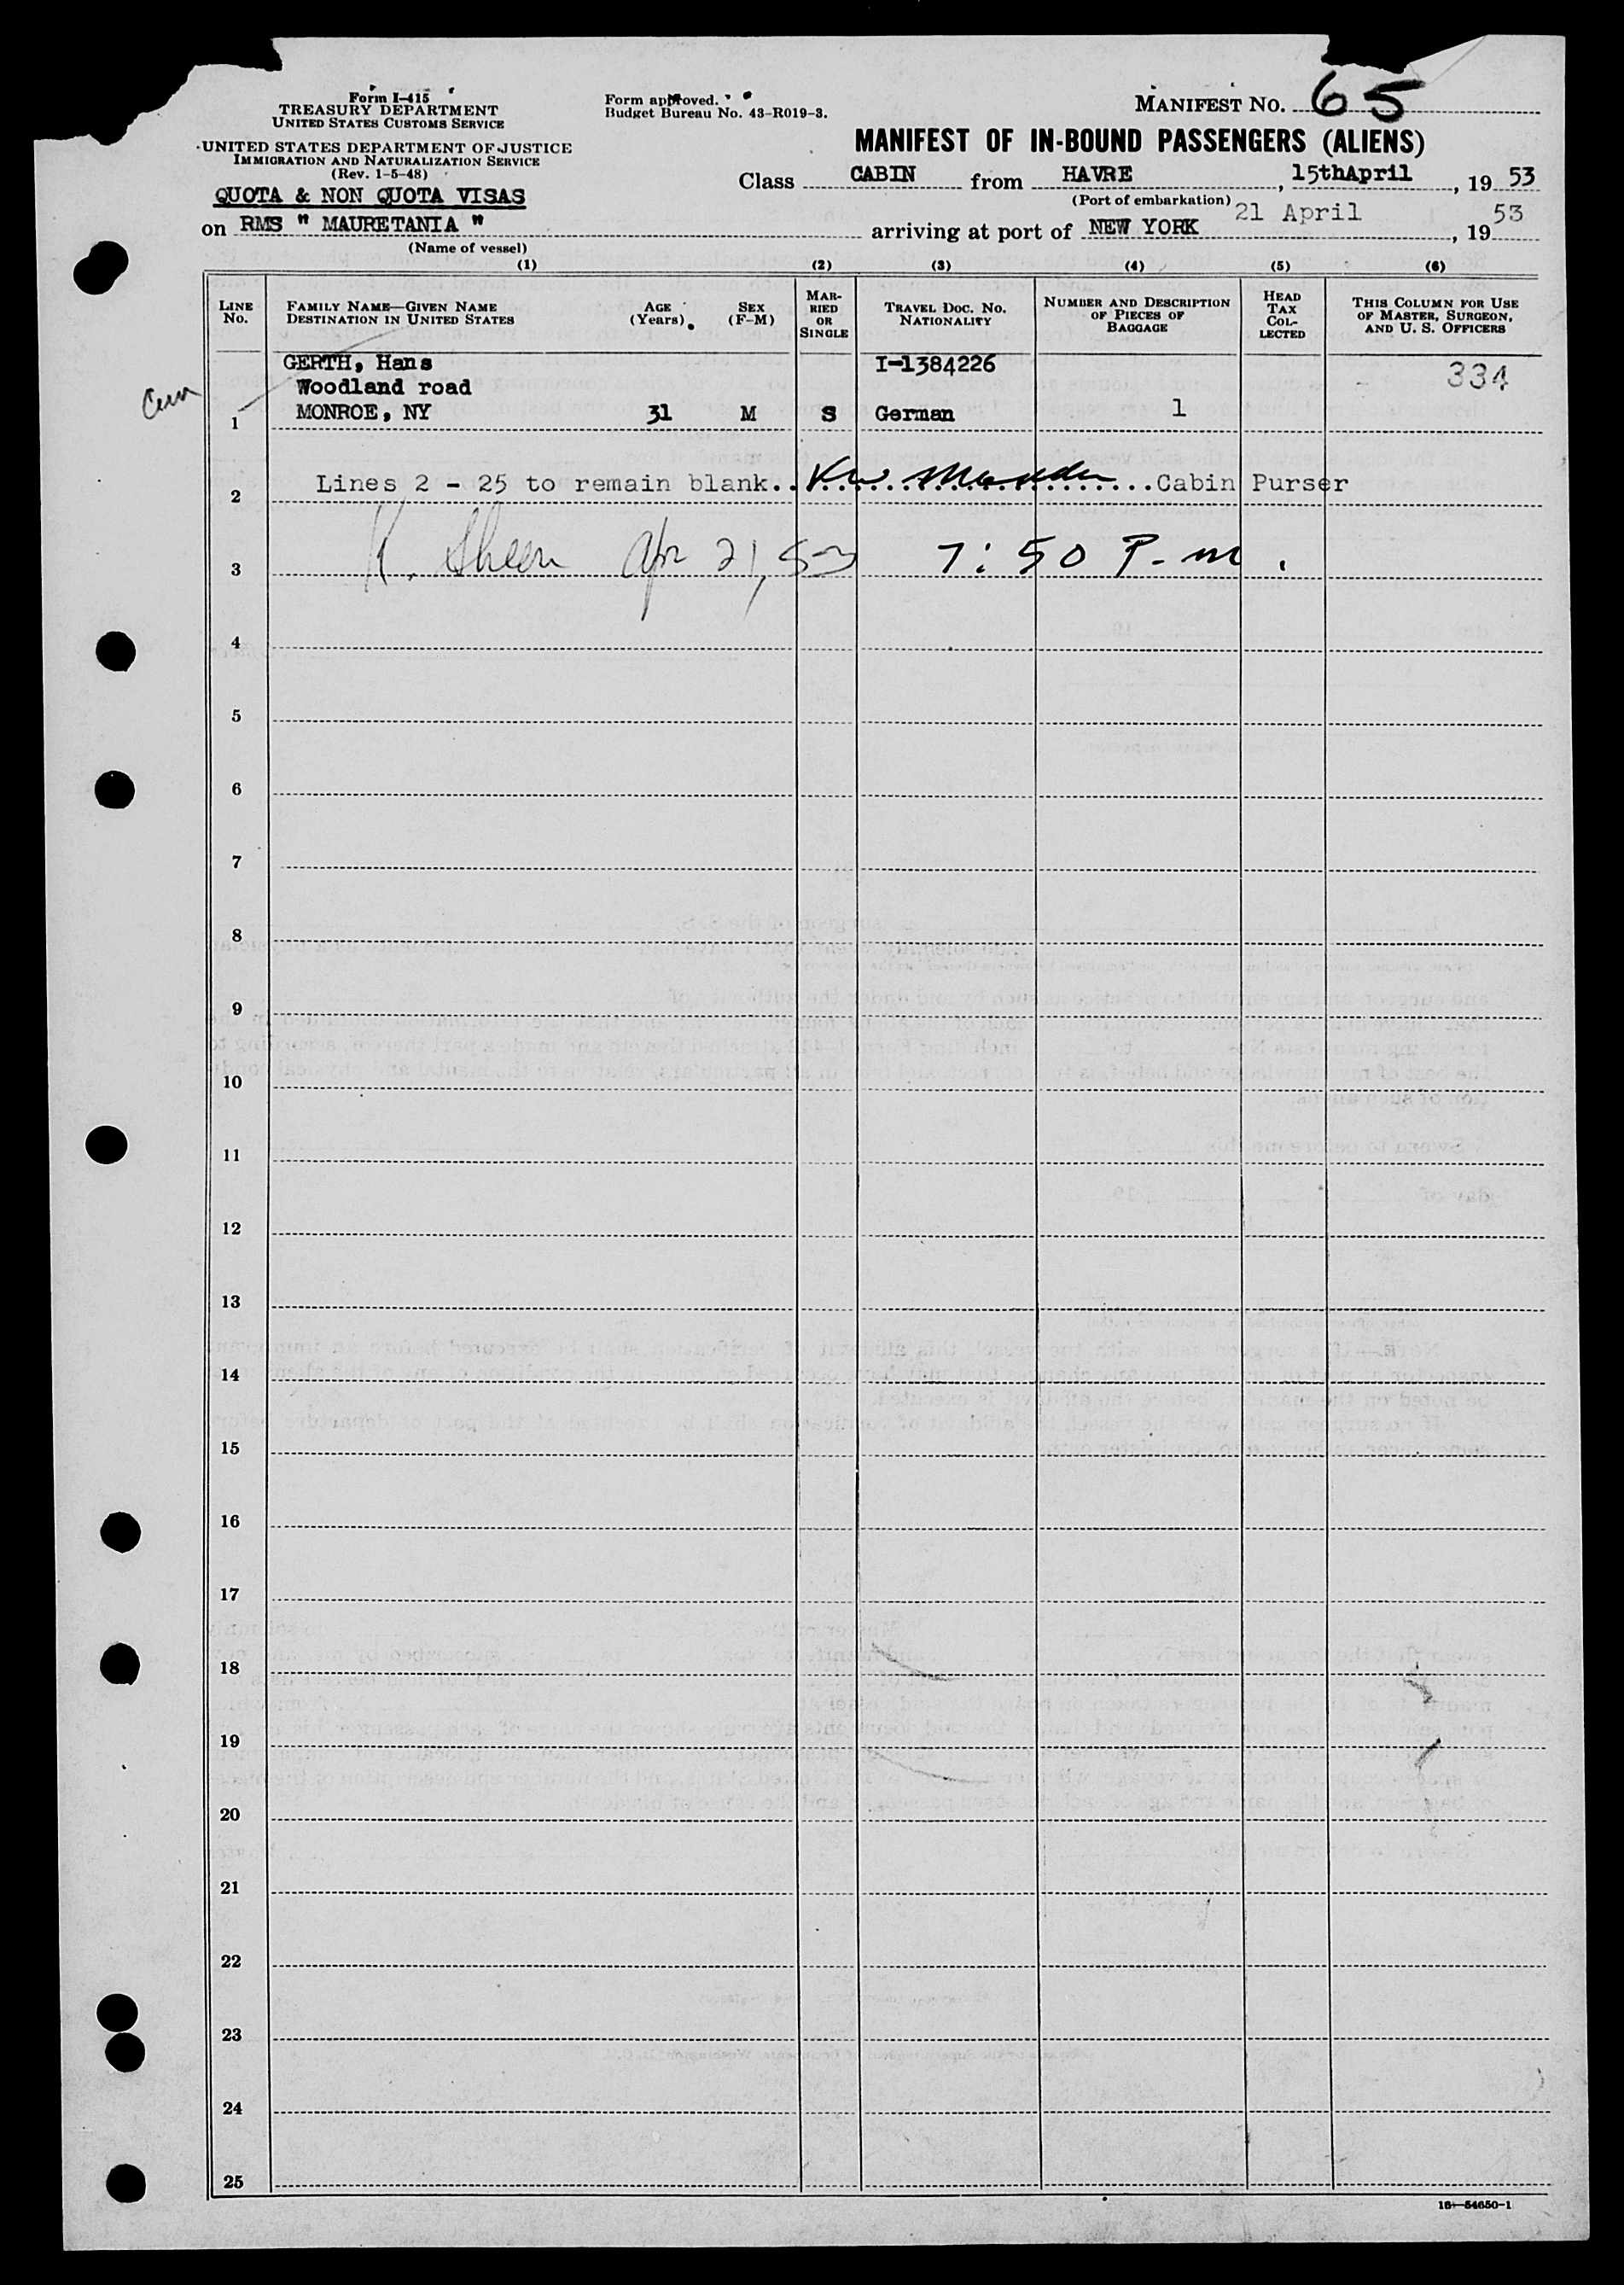 Form I-415
TREASURY DEPARTMENT
UNITED STATES CUSTOMS SERVICE
UNITED STATES DEPARTMENT OF JUSTICE
IMMIGRATION AND NATURALIZATION SERVICE
(Rev. 1-5-48)
QUOTA & NON QUOTA VISAS
Form approved.
Budget Bureau No. 43-R019-3.
MANIFEST NO. 65
MANIFEST OF IN-BOUND PASSENGERS (ALIENS)
Class CABIN from HAVRE, 15thApril, 1953
(Port of embarkation)
on RMS " MAURETANIA " arriving at port of NEW YORK 21 April, 1953
(Name of vessel)
(1) (2) (3) (4) (5) (6)
LINE NO. FAMILY NAME—GIVEN NAME DESTINATION IN UNITED STATES AGE (Years) SEX (F-M) MARRIED OR SINGLE TRAVEL DOC. NO. NATIONALITY NUMBER AND DESCRIPTION OF PIECES OF BAGGAGE HEAD TAX COLLECTED THIS COLUMN FOR USE OF MASTER, SURGEON, AND U. S. OFFICERS
GERTH, Hans I-1384226 334
Woodland road
1 MONROE, NY 31 M S German 1
2 Lines 2 - 25 to remain blank. Cabin Purser
3 K. Sheen Apr 21, 53 7:50 P.m.
4
5
6
7
8
9
10
11
12
13
14
15
16
17
18
19
20
21
22
23
24
25
16—54650-1